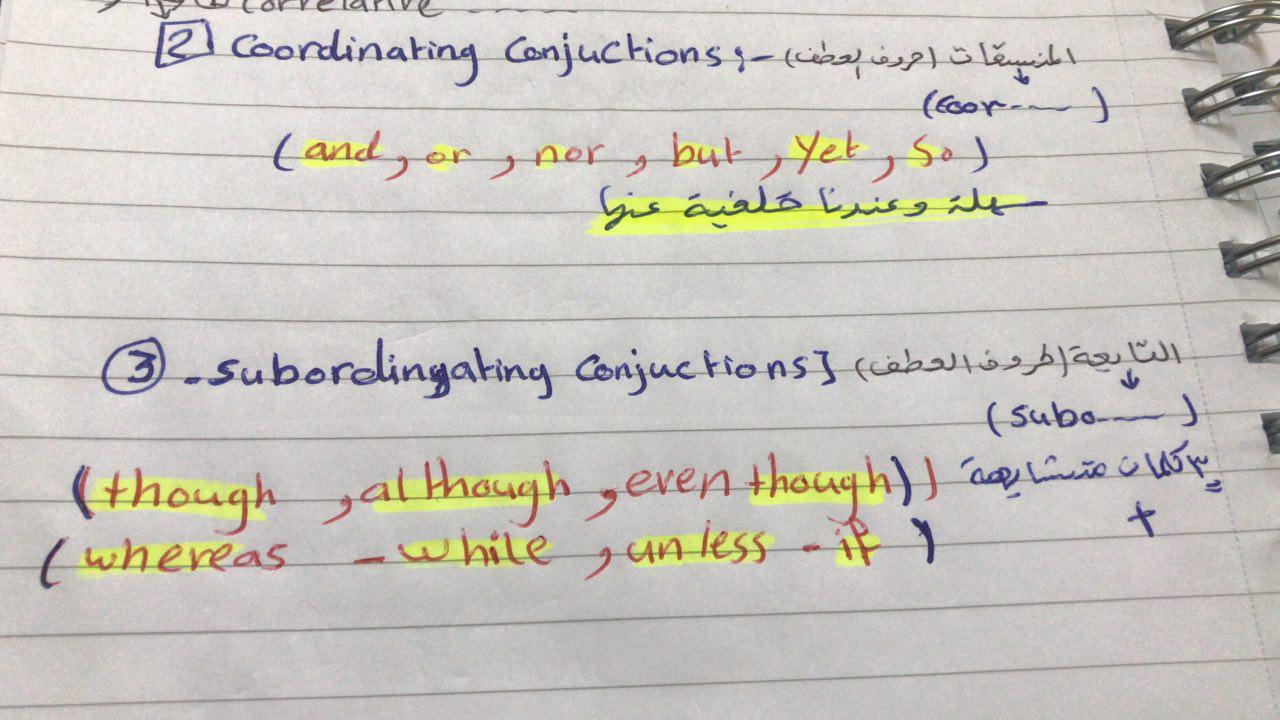 correlative
[2] Coordinating Conjuctions :- المنسقات (حروف العطف)
(Coor---- )
(and, or, nor, but, yet, so)
سهلة وعندنا خلفية عنها
(3) - subordingating Conjuctions] التابعة (حروف العطف)
(subo---- )
(though , although , even though)) ٣ كلمات متشابهة
(whereas - while , unless - if ) +